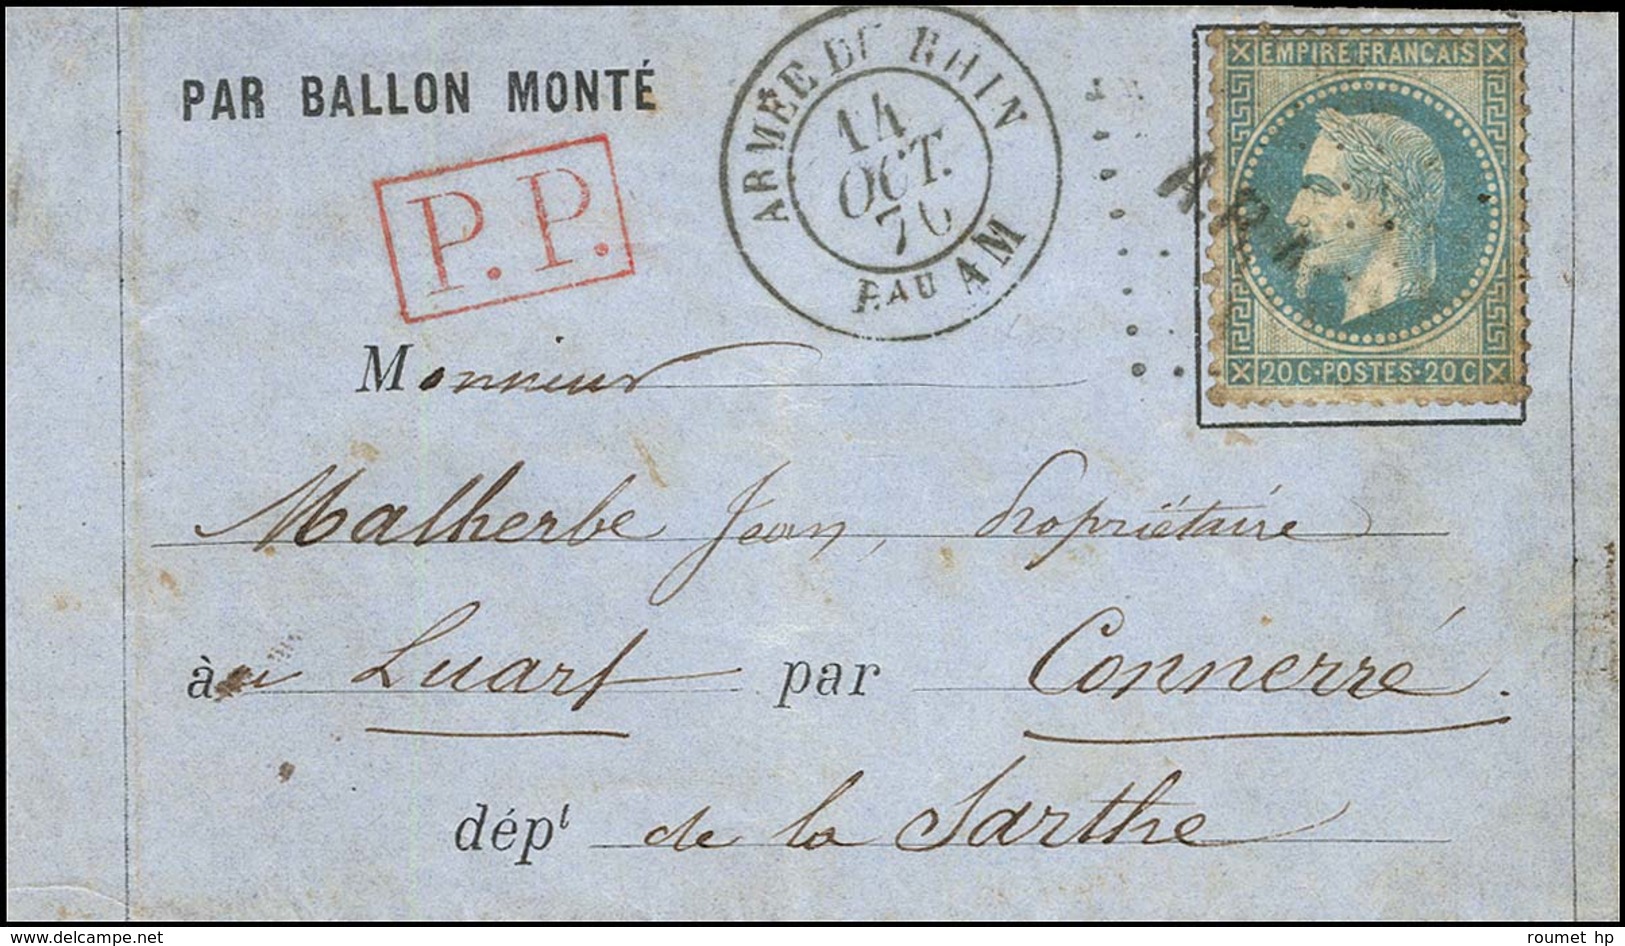 PAR BALLON MONTÉ
P.P.
ARMÉE DU RHIN
14
OCT.
70
AM
EMPIRE FRANCAIS
20C·POSTES·20C
Monsieur
Malherbe Jean, Propriétaire
à Luart par Connerré.
dépt de la Sarthe
www.delcampe.net
roumet hp